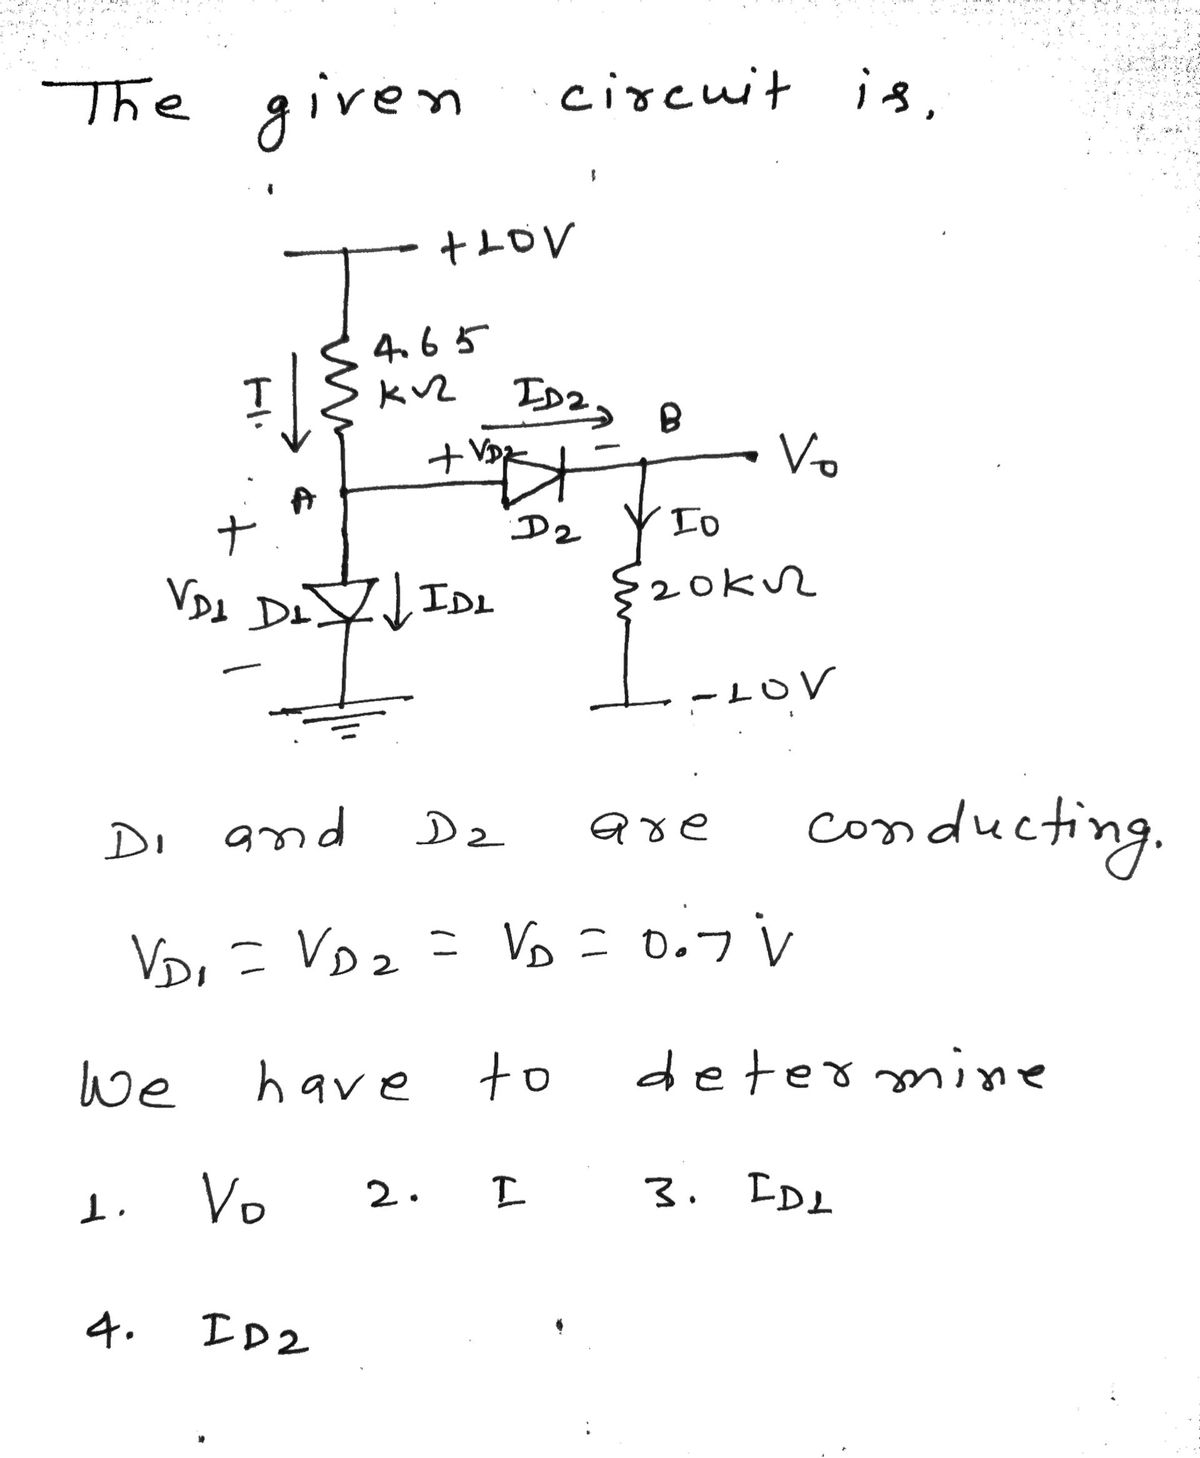 The given circuit is,
+10V
4.65
kΩ
I
ID2
B
+ VD2 -
Vo
A
+
D2
Io
VD1 D1
ID1
20kΩ
-
-10V
D1 and D2 are conducting.
VD1 = VD2 = VD = 0.7 V
We have to determine
1. Vo 2. I 3. ID1
4. ID2